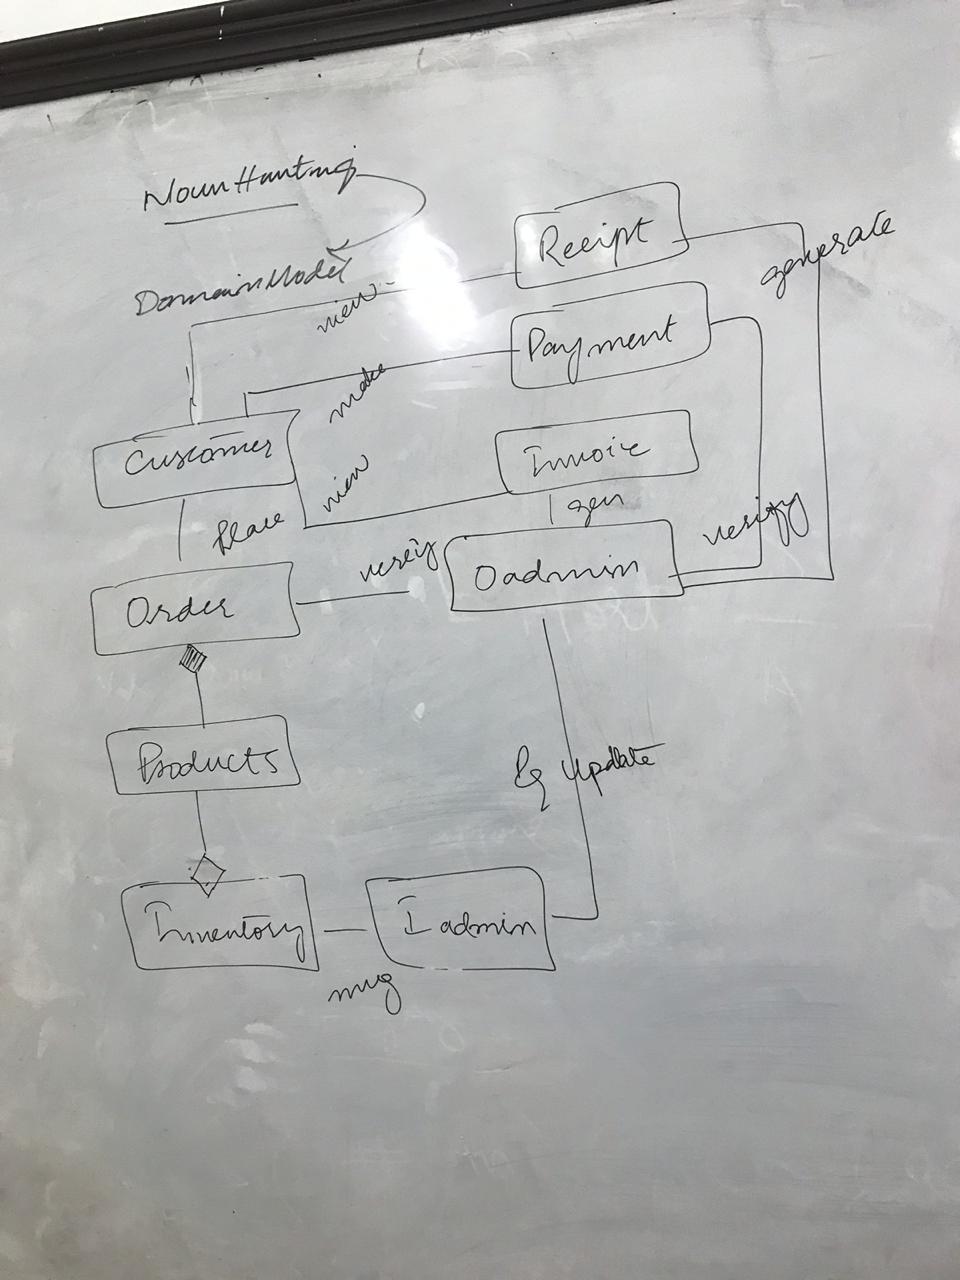 Noun Hunting
Domain Model
Receipt
generate
view
Payment
make
Customer
Invoice
view
gen
Place
verify
verify
Oadmin
Order
Products
update
Inventory
I admin
mng